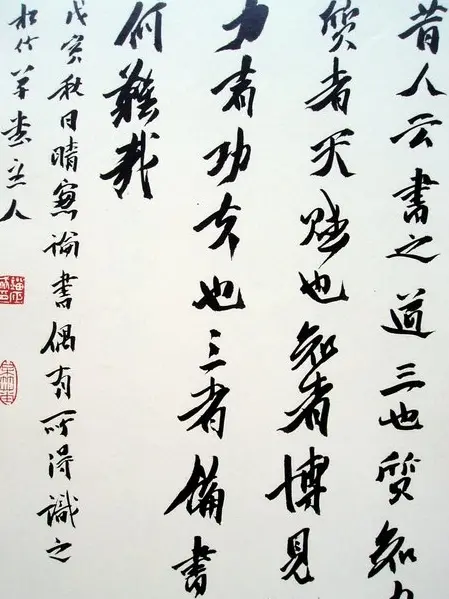 昔人云書之道三也質知力
質者天賦也知者博見
力者功夫也三者備書
何難哉
戊寅秋日晴窗論書偶有所得識之
松竹草堂主人